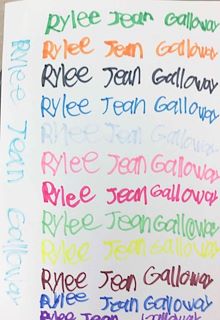 Rylee Jean Galloway
Rylee Jean Galloway
Rylee Jean Galloway
Rylee Jean Galloway
Rylee Jean Galloway
Rylee Jean Galloway
Rylee Jean Galloway
Rylee Jean Galloway
Rylee Jean Galloway
Rylee Jean Galloway
Rylee Jean Galloway
Rylee Jean Galloway
Rylee Jean Galloway